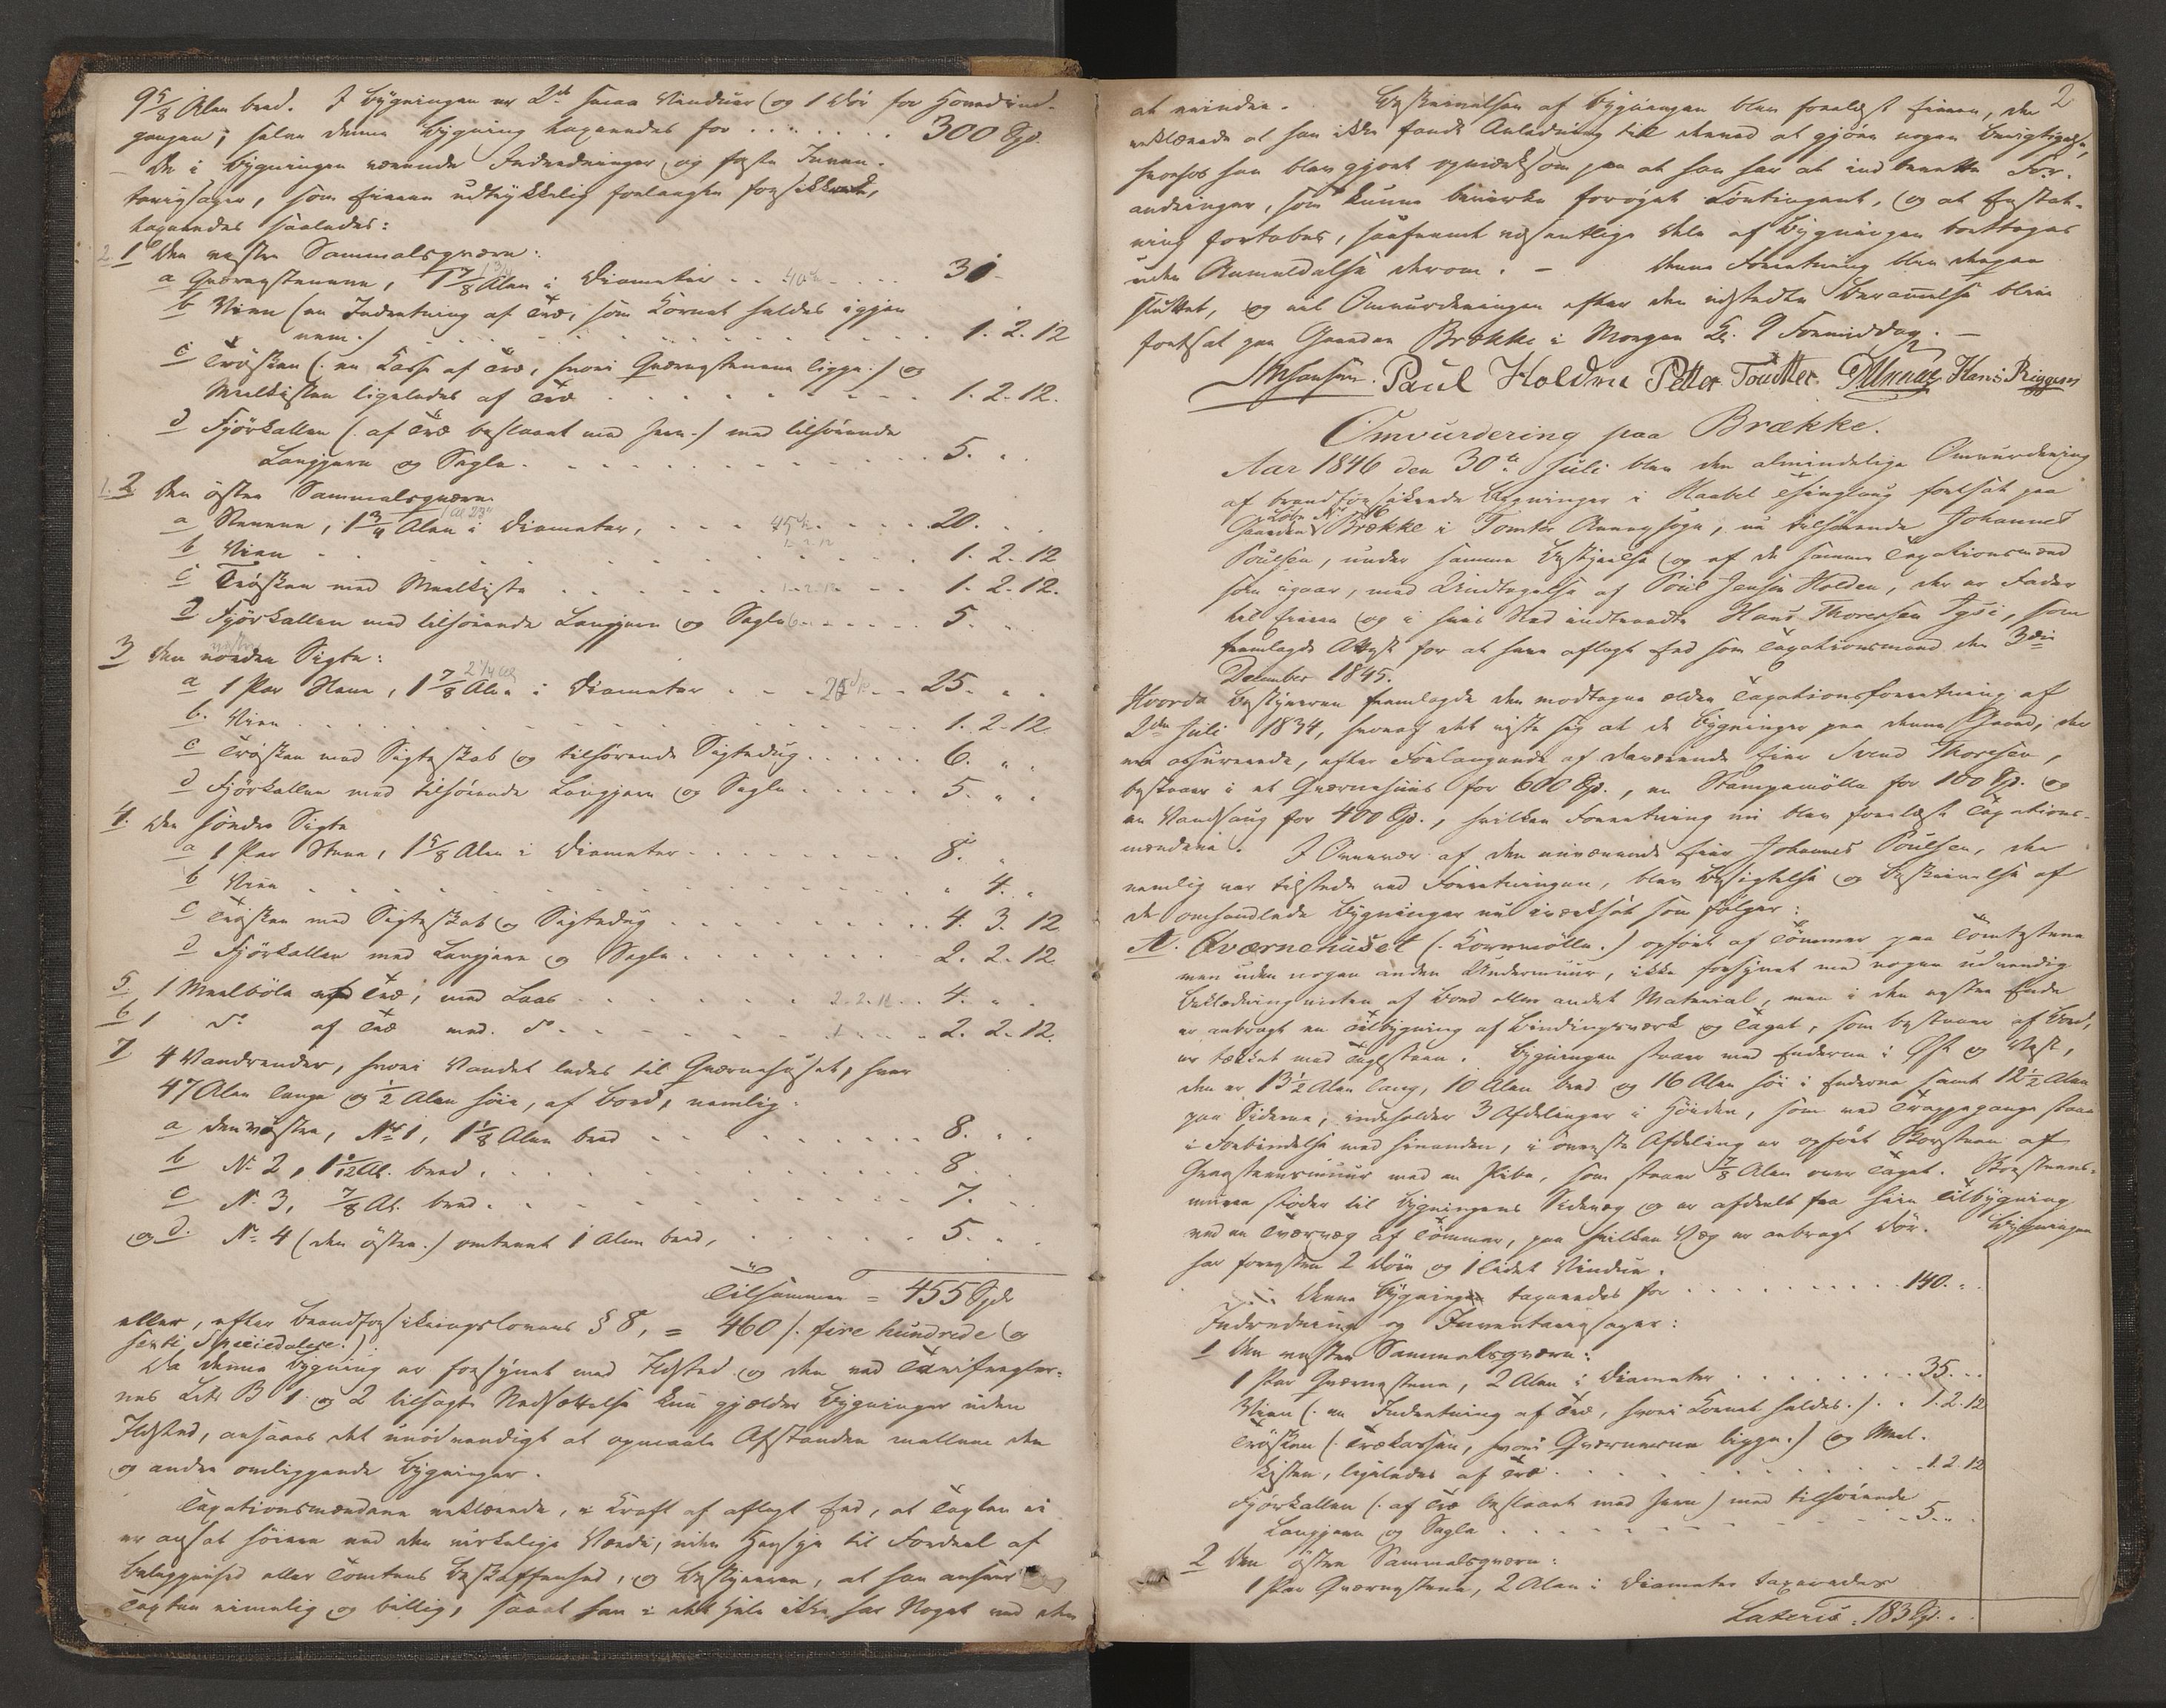 9 5/8 Alen bred. I Bygningen er 2de smaa Vinduer og 1 Dör for Hovedind-
gangen; selve denne Bygning taxeredes for . . . . . . . 300 Spd.
De i Bygningen værende Indredninger og faste Inven-
tariisager, som Eieren udtrykkelig forlangte forsikkrede,
taxeredes saaledes:
2. 1 Den vestre Sammalsqværn:
a Qværnstenene, 1 7/8 Alen i Diameter . . . . 30 -
b Vien (en Indretning af Træ, som Kornet heldes igjen
nem.) . . . . . . 1. 2. 12
c Tröskен (: en Kasse af Træ, hvori Qværnstenene ligge.) og
Meelkisten ligeledes af Træ . . . . . . . 1. 2. 12.
d Fjörkallen (: af Træ beslaaet med Jern.) med tilhörende
Langjern og Segle . . . . . . . 5. " .
1. 2 Den östre Sammalsqværn
a Stenene, 1 3/4 Alen i Diameter, . . . 20. . .
b Vien . . . . . . 1. 2. 12
c Trösken med Meelkiste . . . . . . 1. 2. 12.
d Fjörkallen med tilhörende Langjern og Segle . . . . 5. .
3 Den nordre Sigte:
a 1 Par Stene, 1 7/8 Alen i Diameter . . . 25. " .
b. Vien . . . . . . 1. 2. 12
c Trösken med Sigteskab og tilhörende Sigtedug . . . . . 6. " .
d Fjörkallen med tilhörende Langjern og Segle . . . . 5. " .
4. Den söndre Sigte
a 1 Par Stene, 1 5/8 Alen i Diameter . . . . . 8. " .
b Vien . . . . . . " 4. "
c Trösken med Sigteskab og Sigtedug . . . . . 4. 3. 12
d Fjörkallen med Langjern og Segle . . . . . 2. 2. 12
5. 1 Meelböle af Træ, med Laas . . . . . 4. " .
6 1 do af Træ med do . . . . . 2. 2. 12.
7 4 Vandrender, hvori Vandet ledes til Qværnehuset, hver
47 Alen lange og 1/2 Alen höie, af Bord, nemlig:
a den vestre, No 1, 1 1/8 Alen bred . . . . . 8. " .
b No 2, Al. bred . . . . . 8 . .
c No 3, 7/8 Al. bred . . . . . 7. .
og d. No 4 (den östre.) omtrent 1 Alen bred, . . . . . 5. " .
Tilsammen = 455 Spd
eller, efter Brandforsikringslovens § 8, = 460 /: fire hundrede og
sexti Speciedaler.)
Da denne Bygning er forsynet med Ildsted og den ved Tarifregler-
nes Litr B 1 og 2 tilsagte Nedsættelse kun gjælder Bygninger uden
Ildsted, ansaaes det unödvendigt at opmaale Afstanden mellem den
og andre omliggende Bygninger.
Taxationsmændene erklærede, i Kraft af aflagt Eed, at Taxten ei
er ansat höiere end den virkelige Værdi, uden Hensyn til Fordeel af
Beliggenhed eller Tomtens Beskaffenhed, og Bestyreren, at han anseer
Taxten rimelig og billig, samt han i det Hele ikke har Noget ved den
2
at erindre. Beskrivelsen af Bygningen blev forelæst Eieren, der
erklærede at han ikke fandt Anledning til dermed at gjöre nogen Berigtigelse,
hvorhos han blev gjort opmærksom paa at han har at indberette For-
andringer, som kunne bevirke foröget Contingent, og at Erstat-
ning fortabes, saafremt væsentlige Dele af Bygningen borttages
uden Anmeldelse derom. - Denne Forretning blev derpaa
sluttet, og vil Omvurderingen efter den udstedte Berammelse blive
fortsat paa Gaarden Brække i Morgen Kl. 9 Formiddag. -
Paul Holden Petter Toudter Hans Riggens
Omvurdering paa Brække.
Aar 1846 den 30te Juli blev den almindelige Omvurdering
af brandforsikrede Bygninger i Haabel Thinglaug fortsat paa
Gaarden Brække i Tomter Annexsogn, nu tilhörende Johannes
Poulsen, under samme Bestyrelse og af de samme Taxationsmænd
som igaar, med Undtagelse af Poul Jensen Holden, der er Fader
til Eieren og i hvis Sted indtraadte Hans Thoresen Igsi, som
fremlagde Attest for at have aflagt Eed som Taxationsmand den 3die
December 1845.
Hvorda Bestyreren fremlagde den modtagne ældre Taxationsforretning af
2den Juli 1834, hvoraf det viste sig at de Bygninger paa denne Gaard, der
ere assurerede, efter Forlangende af daværende Eier Svend Thoresen,
bestaaer i et Qværnehuus for 600 Spd., en Stampemölle for 100 Spd. og
en Vandsaug for 400 Spd., hvilken Forretning nu blev forelæst Taxations-
mændene. I Overvær af den nuværende Eier Johannes Poulsen, der
nemlig var tilstede ved Forretningen, blev Besigtelse og Beskrivelse af
de omhandlede Bygninger nu iværksat som fölger:
A. Qværnehuset (: Kornmölle.) opfört af Tömmer paa Tomtestene
men uden nogen anden Undermuur, ikke forsynet med nogen udvendig
Beklædning enten af Bord eller andet Material, men i den vestre Ende
er anbragt en Tilbygning af Bindingsværk og Taget, som bestaaer af Bord,
er tækket med Taglsteen. Bygningen staaer med Enderne i Öst og Vest,
den er 13 1/2 Alen lang, 10 Alen bred og 16 Alen höi i Enderne samt 12 1/2 Alen
paa Siderne, indeholder 3 Afdelinger i Höiden, som ved Trappegange staae
i Forbindelse med hinanden, i överste Afdeling er opfört Skorsteen af
Graasteensmuur med en Pibe, som staaer 7/8 Alen over Taget. Skorsteens-
muren stöder til Bygningens Sidevæg og er afdeelt fra hiin Tilbygning
ved en Tværvæg af Tömmer, paa hvilken Væg er anbragt Dör. Bygningen
har forresten 2 Döre og 1 lidet Vindue.
Denne Bygning taxeredes for . . . . . . . 140. " .
Indredning og Inventariisager:
1 Den vestre Sammalsqværn:
1 Par Qværnstene, 2 Alen i Diameter . . . . . . . 35. . .
Vien (: en Indretning af Træ, hvori Kornet heldes.) . . 1. 2. 12
Trösken (: Trækassen, hvori Qværnerne ligge.) og Meel-
kisten, ligeledes af Træ . . . . . . . 1. 2. 12
Fjörkallen (: af Træ beslaaet med Jern) med tilhörende
Langjern og Segle . . . . . . . 5. " .
2 Den östre Sammalsqværn:
1 Par Qværnstene, 2 Alen i Diameter taxeredes
Lateris 183 Spd. .